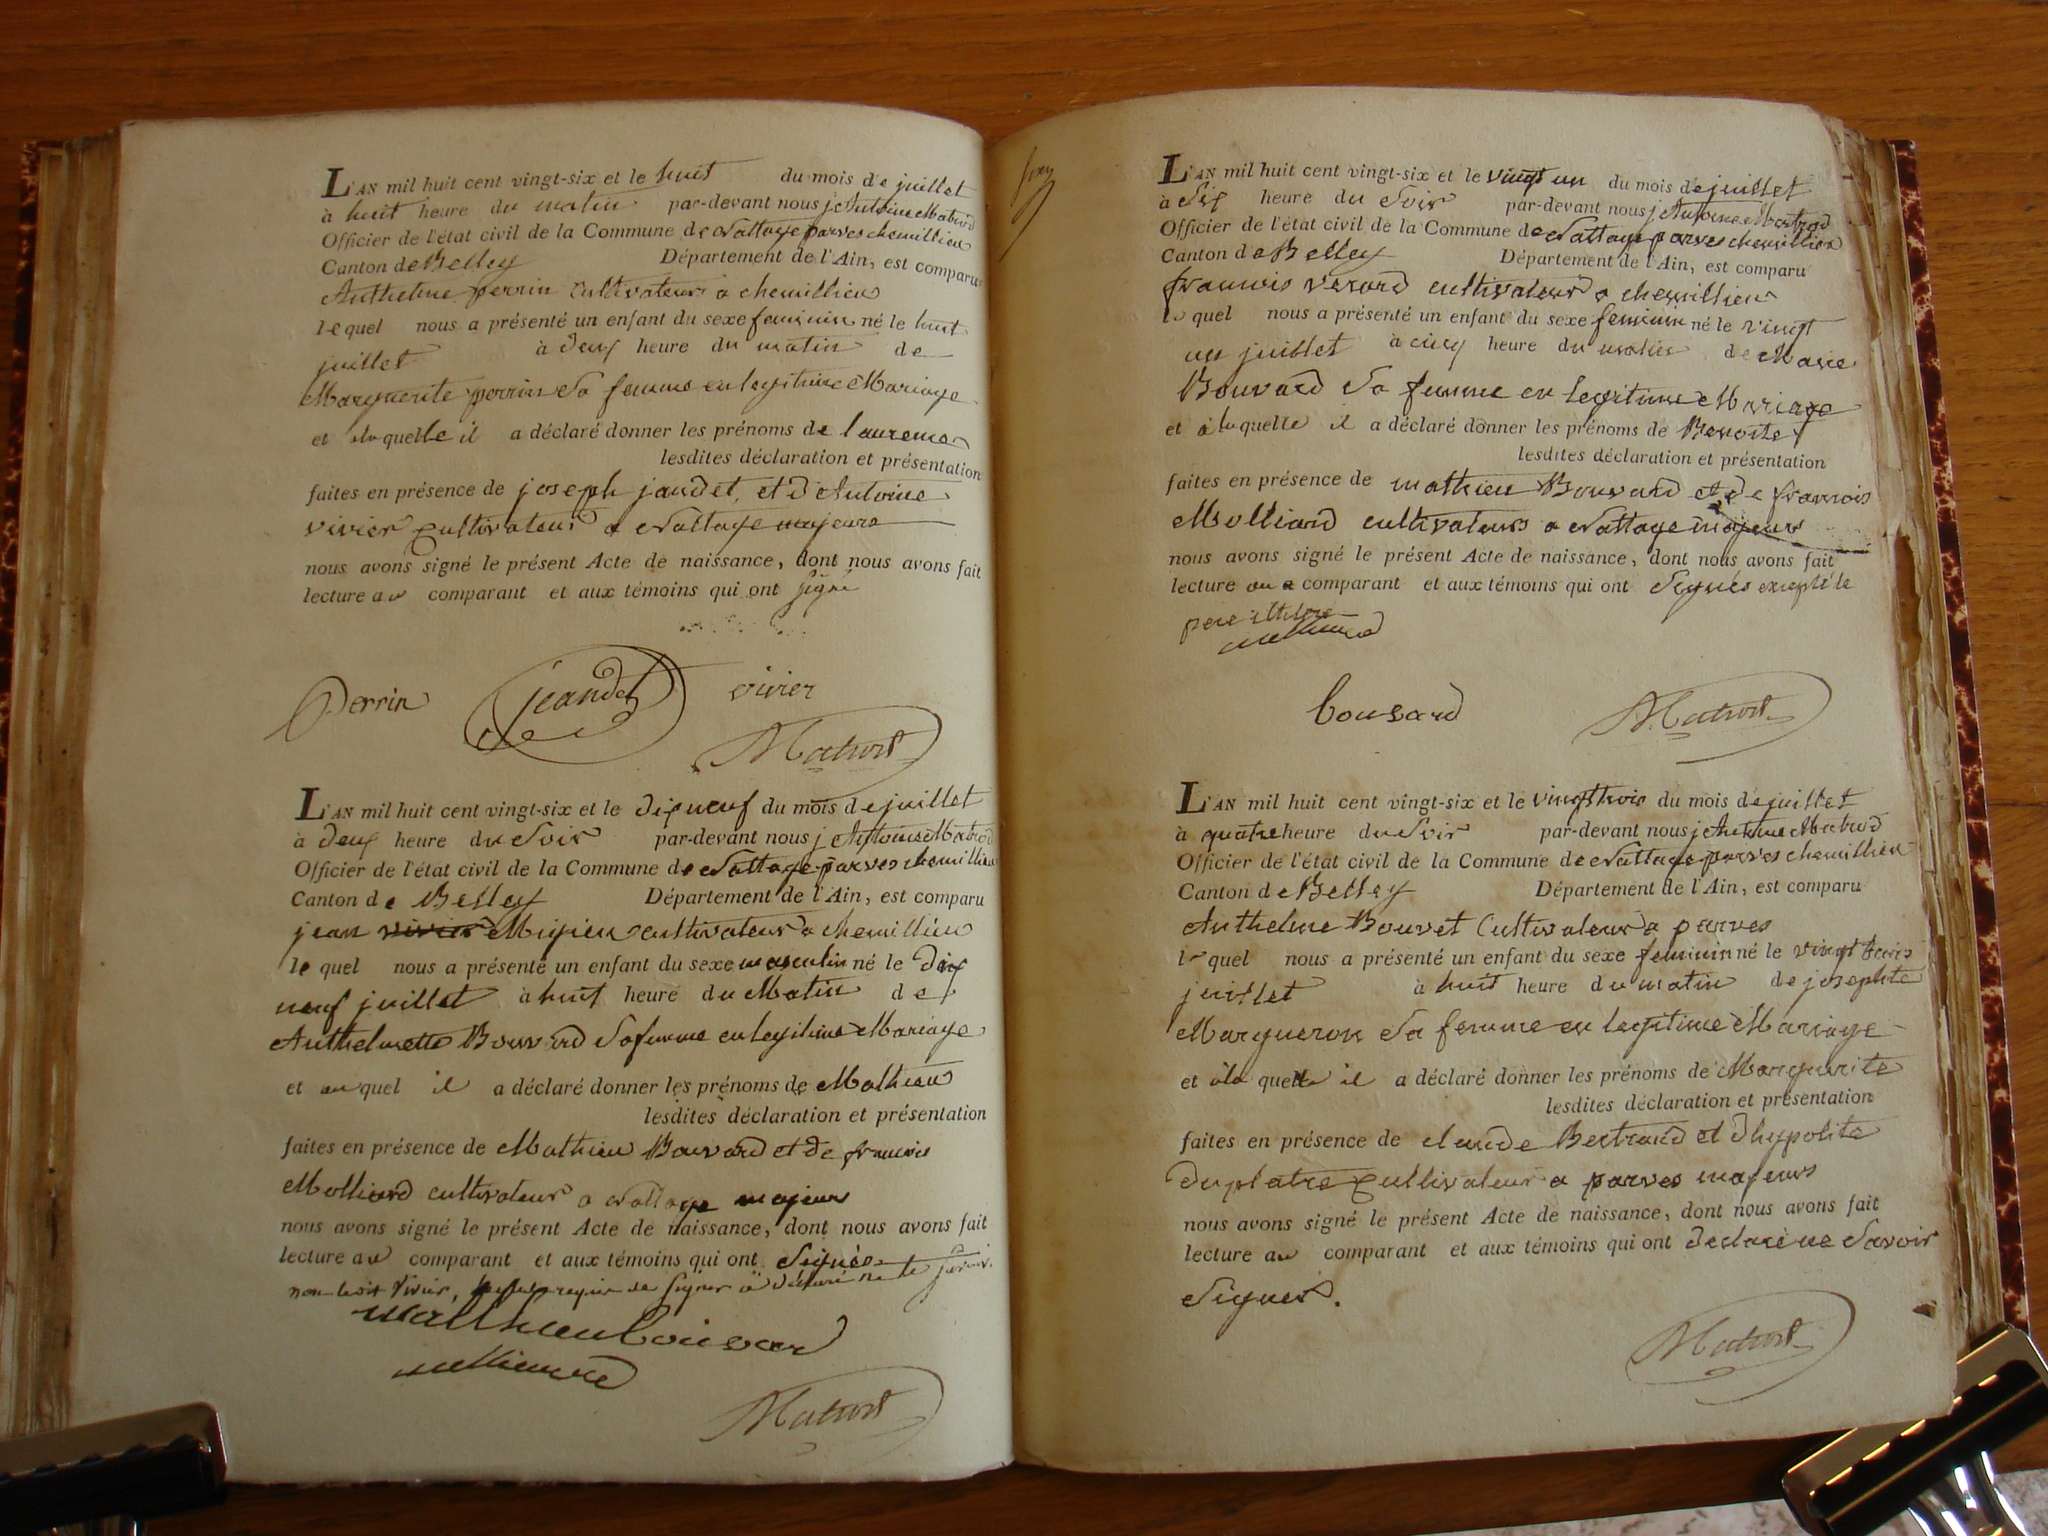 L'AN mil huit cent vingt-six et le huit du mois de juillet
à huit heure du matin par-devant nous j Antoine Matrod
Officier de l'état civil de la Commune de Nattage parves chemillieu
Canton de Belley Département de l'Ain, est comparu
Anthelme perrin cultivateur a chemillieu
lequel nous a présenté un enfant du sexe feminin né le huit
juillet à deux heure du matin de
Marguerite perrin Sa femme en legitime Mariage
et a la quelle il a déclaré donner les prénoms de laurence
lesdites déclaration et présentation
faites en présence de joseph jandet, et d'Antoine
vivier cultivateur a Nattage majeurs
nous avons signé le présent Acte de naissance, dont nous avons fait
lecture au comparant et aux témoins qui ont signé
Perrin jeandet vivier
Matrod
L'AN mil huit cent vingt-six et le dix neuf du mois de juillet
à deux heure du Soir par-devant nous j Antoine Matrod
Officier de l'état civil de la Commune de Nattage parves chemillieu
Canton de Belley Département de l'Ain, est comparu
jean vivier cultivateur a chemillieu
le quel nous a présenté un enfant du sexe masculin né le dix
neuf juillet à huit heure du Matin de
Anthelmette Bouvard Sa femme en legitime Mariage
et au quel il a déclaré donner les prénoms de Mathieu
lesdites déclaration et présentation
faites en présence de Mathieu Bouvard et de francois
Molliard cultivateur a Nattage majeurs
nous avons signé le présent Acte de naissance, dont nous avons fait
lecture au comparant et aux témoins qui ont Signés
non ledit vivier, requis de signer a déclaré ne le savoir
mathieu bouvard
molliard
Matrod
L'AN mil huit cent vingt-six et le vingt un du mois de juillet
à Six heure du Soir par-devant nous j Antoine Matrod
Officier de l'état civil de la Commune de Nattage parves chemillieu
Canton de Belley Département de l'Ain, est comparu
francois verard cultivateur a chemillieu
le quel nous a présenté un enfant du sexe feminin né le vingt
un juillet à cinq heure du matin de Marie
Bouvard Sa femme en legitime Mariage
et a la quelle il a déclaré donner les prénoms de Benoite
lesdites déclaration et présentation
faites en présence de mathieu Bouvard et de francois
Molliard cultivateurs a Nattage majeurs
nous avons signé le présent Acte de naissance, dont nous avons fait
lecture au comparant et aux témoins qui ont Signés excepté le
pere
molliard
bouvard Matrod
L'AN mil huit cent vingt-six et le vingt trois du mois de juillet
à quatre heure du Soir par-devant nous j Antoine Matrod
Officier de l'état civil de la Commune de Nattage parves chemillieu
Canton de Belley Département de l'Ain, est comparu
Anthelme Bouvet Cultivateur a parves
le quel nous a présenté un enfant du sexe feminin né le vingt trois
juillet à huit heure du matin de josephte
Margueron Sa femme en legitime Mariage
et a la quelle il a déclaré donner les prénoms de Marguerite
lesdites déclaration et présentation
faites en présence de claude Bertrand et d'hypolite
Duplatre cultivateur a parves majeurs
nous avons signé le présent Acte de naissance, dont nous avons fait
lecture au comparant et aux témoins qui ont declaré ne Savoir
Signer.
Matrod